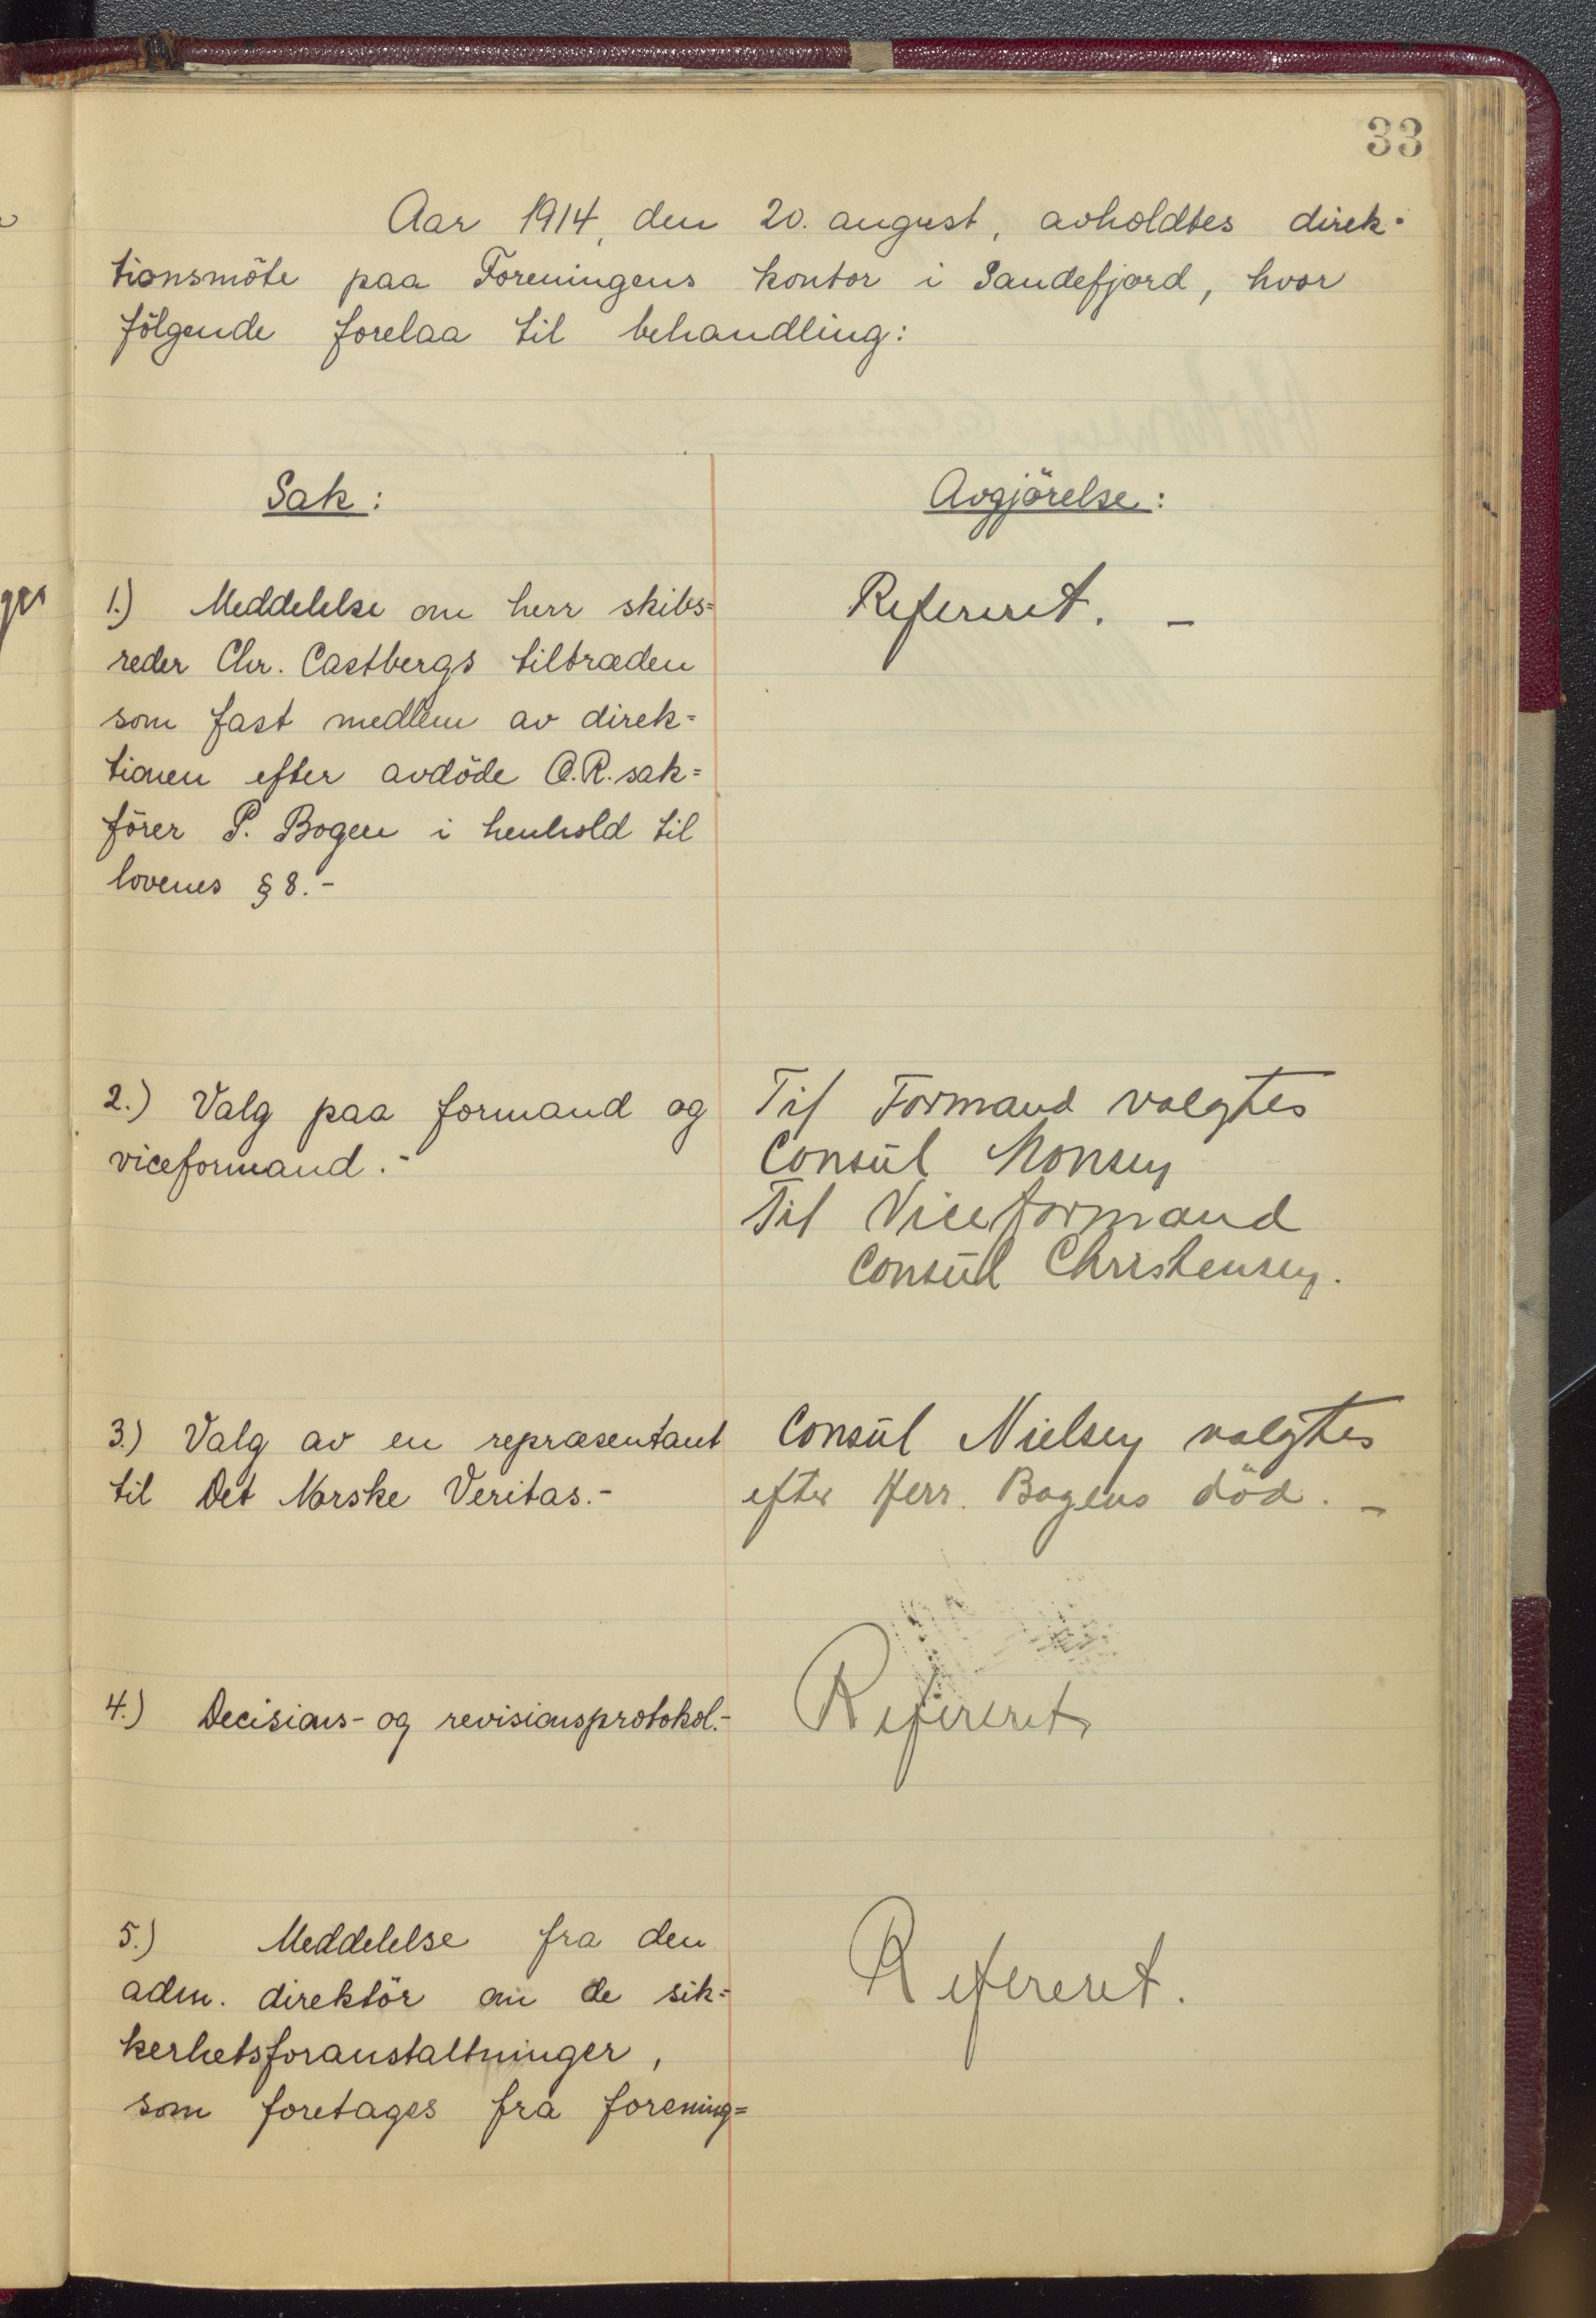 33
Aar 1914, den 20. august, avholdtes direk-
tionsmöte paa Foreningens kontor i Sandefjord, hvor
fölgende forelaa til behandling:
Sak:
Avgjörelse:
1.) Meddelelse om herr skibs=
reder Chr. Castbergs tiltræden
som fast medlem av direk=
tionen efter avdöde O.R. sak=
förer P. Bogen i henhold til
lovenes § 8.-
Refereret. -
2.) Valg paa formand og
viceformand.-
Til Formand valgtes
Consul Monsen
Til Viceformand
Consul Christensen.
3.) Valg av en repræsentant
til Det Norske Veritas.-
Consul Nielsen valgtes
efter Herr. Bogens död. -
4.) Decisions- og revisionsprotokol.-
Refereret
5.) Meddelelse fra den
adm. direktör om de sik=
kerhetsforanstaltninger,
som foretages fra forening=
Refereret.